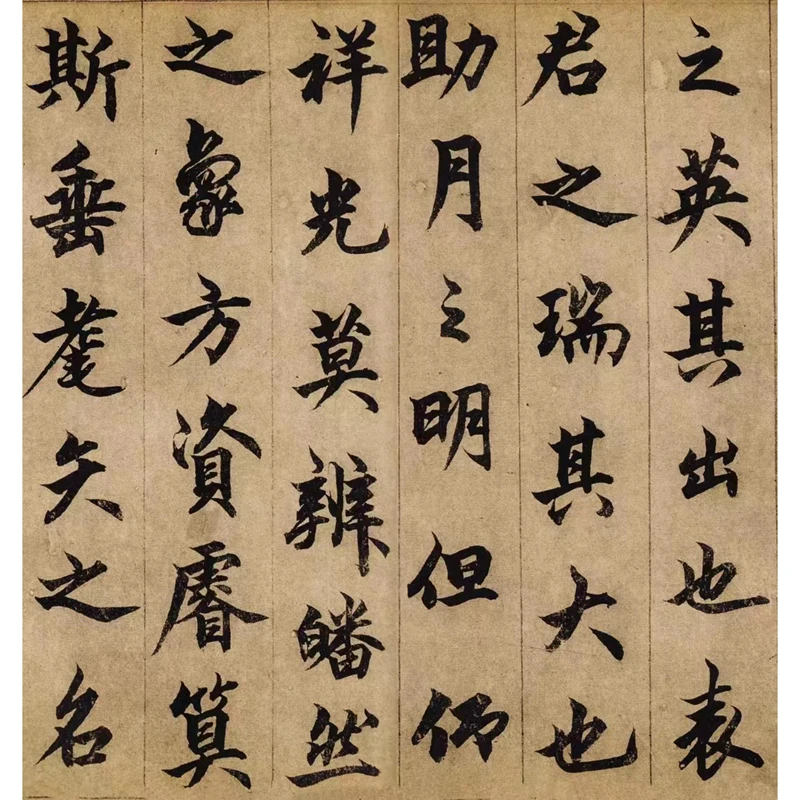 之英其出也表
君之瑞其大也
助月之明但仰
祥光莫辨皤然
之象方資睿算
斯垂耄矣之名